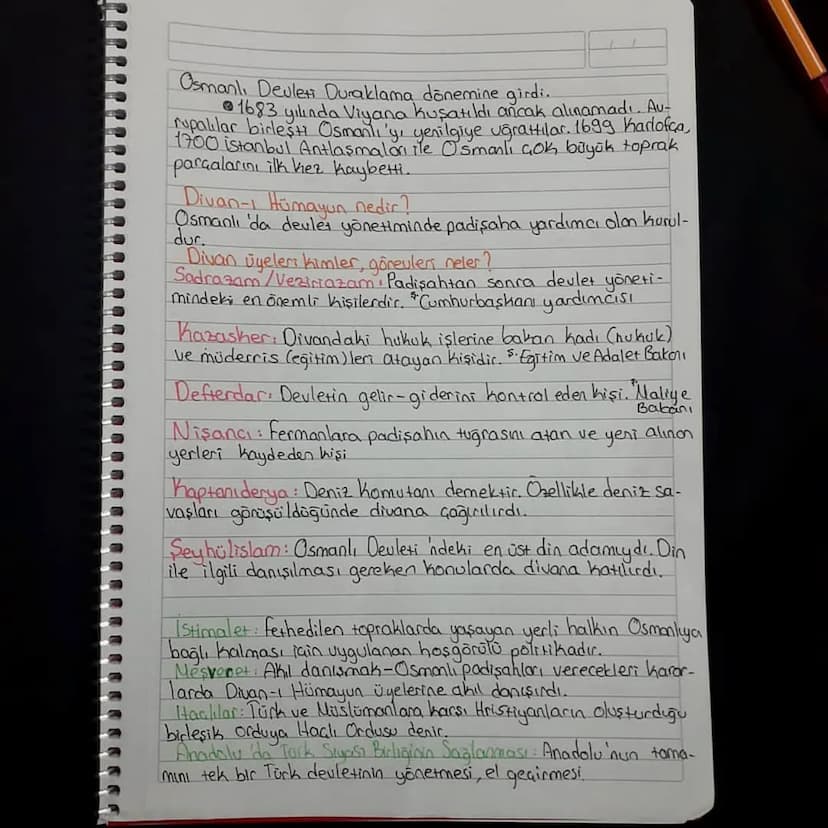 Osmanlı Devleti Duraklama dönemine girdi.
●1683 yılında Viyana kuşatıldı ancak alınamadı. Av-
rupalılar birleşti Osmanlı'yı yenilgiye uğrattılar. 1699 Karlofça,
1700 İstanbul Antlaşmaları ile Osmanlı çok büyük toprak
parçalarını ilk kez kaybetti.
Divan-ı Hümayun nedir?
Osmanlı'da devlet yönetiminde padişaha yardımcı olan kurul-
dur.
Divan üyeleri kimler, görevleri neler?
Sadrazam/Veziriazam: Padişahtan sonra devlet yöneti-
mindeki en önemli kişilerdir. *Cumhurbaşkanı yardımcısı
Kazasker: Divandaki hukuk işlerine bakan kadı (hukuk)
ve müderris (eğitim)leri atayan kişidir. *Eğitim ve Adalet Bakanı
Defterdar: Devletin gelir-giderini kontrol eden kişi. *Maliye
Bakanı
Nişancı: Fermanlara padişahın tuğrasını atan ve yeni alınan
yerleri kaydeden kişi
Kaptanıderya: Deniz Komutanı demektir. Özellikle deniz sa-
vaşları görüşüldüğünde divana çağırılırdı.
Şeyhülislam: Osmanlı Devleti'ndeki en üst din adamıydı. Din
ile ilgili danışılması gereken konularda divana katılırdı.
İstimalet: Fethedilen topraklarda yaşayan yerli halkın Osmanlıya
bağlı kalması için uygulanan hoşgörülü politikadır.
Meşveret: Akıl danışmak-Osmanlı padişahları verecekleri karar-
larda Divan-ı Hümayun üyelerine akıl danışırdı.
Haçlılar: Türk ve Müslümanlara karşı Hristiyanların oluşturduğu
birleşik orduya Haçlı Ordusu denir.
Anadolu'da Türk Siyasi Birliğinin Sağlanması: Anadolu'nun tama-
mını tek bir Türk devletinin yönetmesi, el geçirmesi.